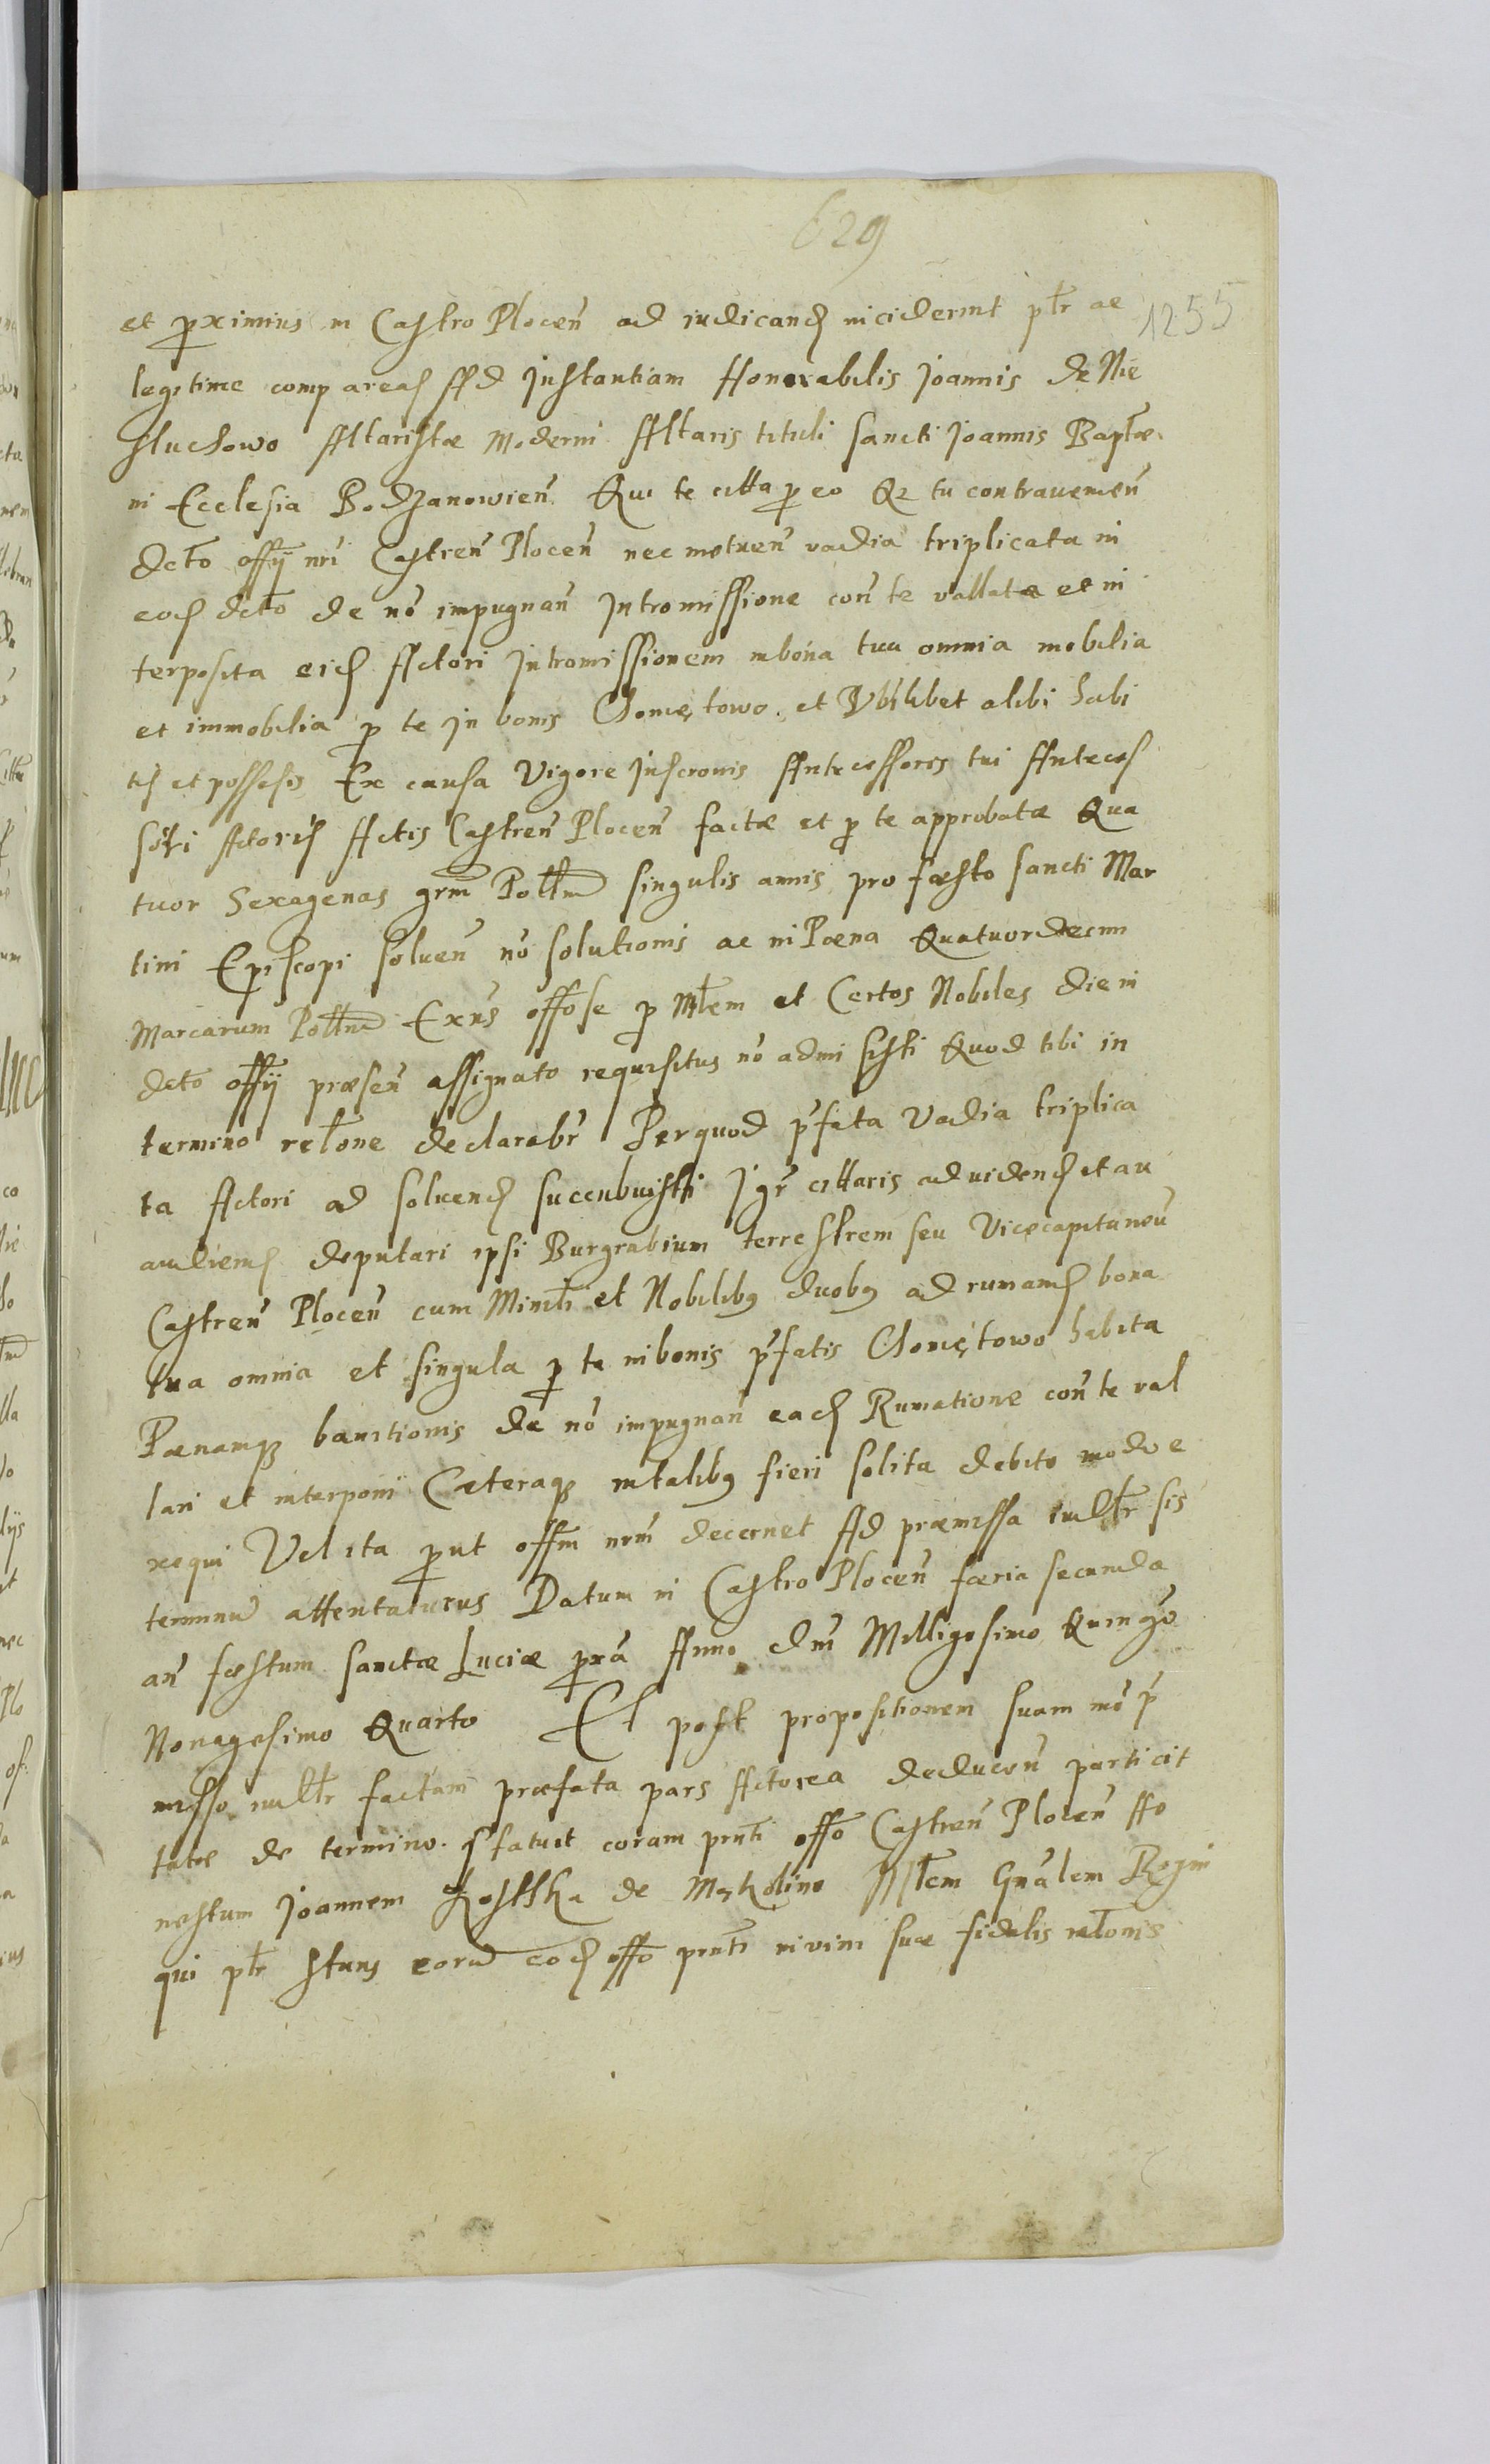 629
1255
et pximius in Castro Plocen̄ ad iudicand inciderint ptr ac
legitime compareas Ad Instantiam Honorabilis Joannis de Nie
sluchowo Altaristæ Moderni Altaris tituli sancti Joannis Baptæ
in Ecclesia Bodzanowien̄ Qui te citta p eo Qz tu contrauenien̄
decto offij nri Castren̄ Plocen̄ nec metuen̄ vadia triplicata in
eod decto de nō impugnan̄ Intromissione con̄ te vallata et in
terposita eid Actori Intromissionem in bona tua omnia mobilia
et immobilia p te In bonis Chomętowo et Vbilibet alibi habi
ta et possessa Ex causa Vigore Inscronis Antecessores tui Anteces
sori Actoris Actis Castren̄ Plocen̄ factæ et p te approbatæ Qua
tuor Sexagenas grm Polłm singulis annis pro fæsto sancti Mar
tini Episcopi soluen̄ nō solutionis ac in Poena Quatuordecim
Marcarum Polłm Exns offose p Młem et Certos Nobiles die in
decto offij præsen̄ assignato requisitus nō admisisti Quod tibi in
termino rełone declarabr Perquod pfata Vadia triplica
ta Actori ad soluend succubuisti Igr cittaris ad uidend et au
audiend deputari ipsi Burgrabium terrestrem seu Vicecapitaneū
Castren̄ Plocen̄ cum Ministi et Nobilibg duobg ad rumand bona
tua omnia et singula p te in bonis pfatis Chomętowo habita
Pænamqz banitionis de nō impugnan̄ ead Rumatione con̄ te val
lari et interponi Cæteraqz in talibg fieri solita debito modo e
xequi Vel ita put offm nrm decernet Ad præmissa iudłr sis
terminū attentaturus Datum in Castro Plocen̄ færia secunda
an̄ festum sanctæ Luciæ pxa Anno dni Milligesimo Quingo
Nonagesimo Quarto Et post propositionem suam mō p
misso iudłr factam præfata pars Actorea deducen̄ particit
tatæ de termino statuit coram pnti offo Castren̄ Plocen̄ Ho
nestum Joannem Kostka de Mękolino Młem Gnalem Regni
qui ptr stans corā eod offo pnti in vim suæ fidelis rełonis